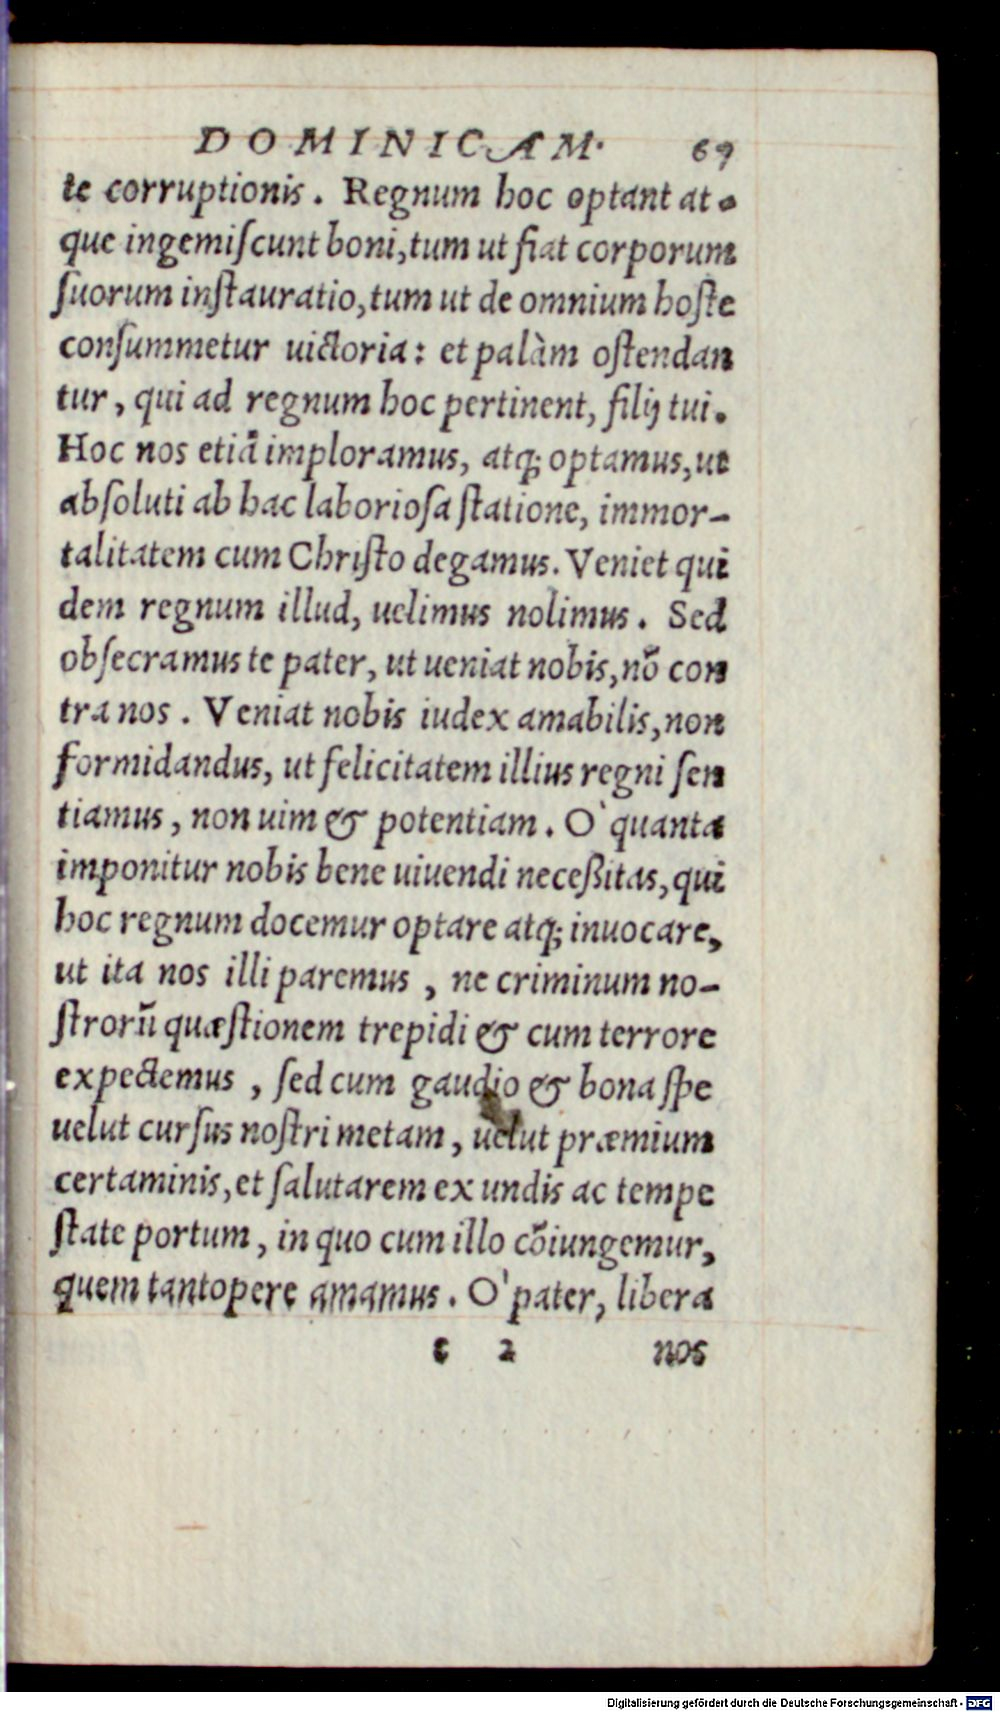 DOMINICAM. 69
te corruptionis. Regnum hoc optant at-
que ingemiſcunt boni, tum ut fiat corporum
ſuorum inſtauratio, tum ut de omnium hoſte
conſummetur uictoria: et palàm oſtendan
tur, qui ad regnum hoc pertinent, filij tui.
Hoc nos etiã imploramus, atq; optamus, ut
abſoluti ab hac laborioſa ſtatione, immor-
talitatem cum Chriſto degamus. Veniet qui
dem regnum illud, uelimus nolimus. Sed
obſecramus te pater, ut ueniat nobis, nõ con
tra nos. Veniat nobis iudex amabilis, non
formidandus, ut felicitatem illius regni ſen
tiamus, non uim & potentiam. O` quanta
imponitur nobis bene uiuendi neceßitas, qui
hoc regnum docemur optare atq; inuocare,
ut ita nos illi paremus, ne criminum no-
ſtrorũ quæſtionem trepidi & cum terrore
expectemus, ſed cum gaudio & bona ſpe
uelut curſus noſtri metam, uelut præmium
certaminis, et ſalutarem ex undis ac tempe
ſtate portum, in quo cum illo cõiungemur,
quem tantopere amamus. O` pater, libera
2 nos
Digitalisierung gefördert durch die Deutsche Forschungsgemeinschaft - DFG